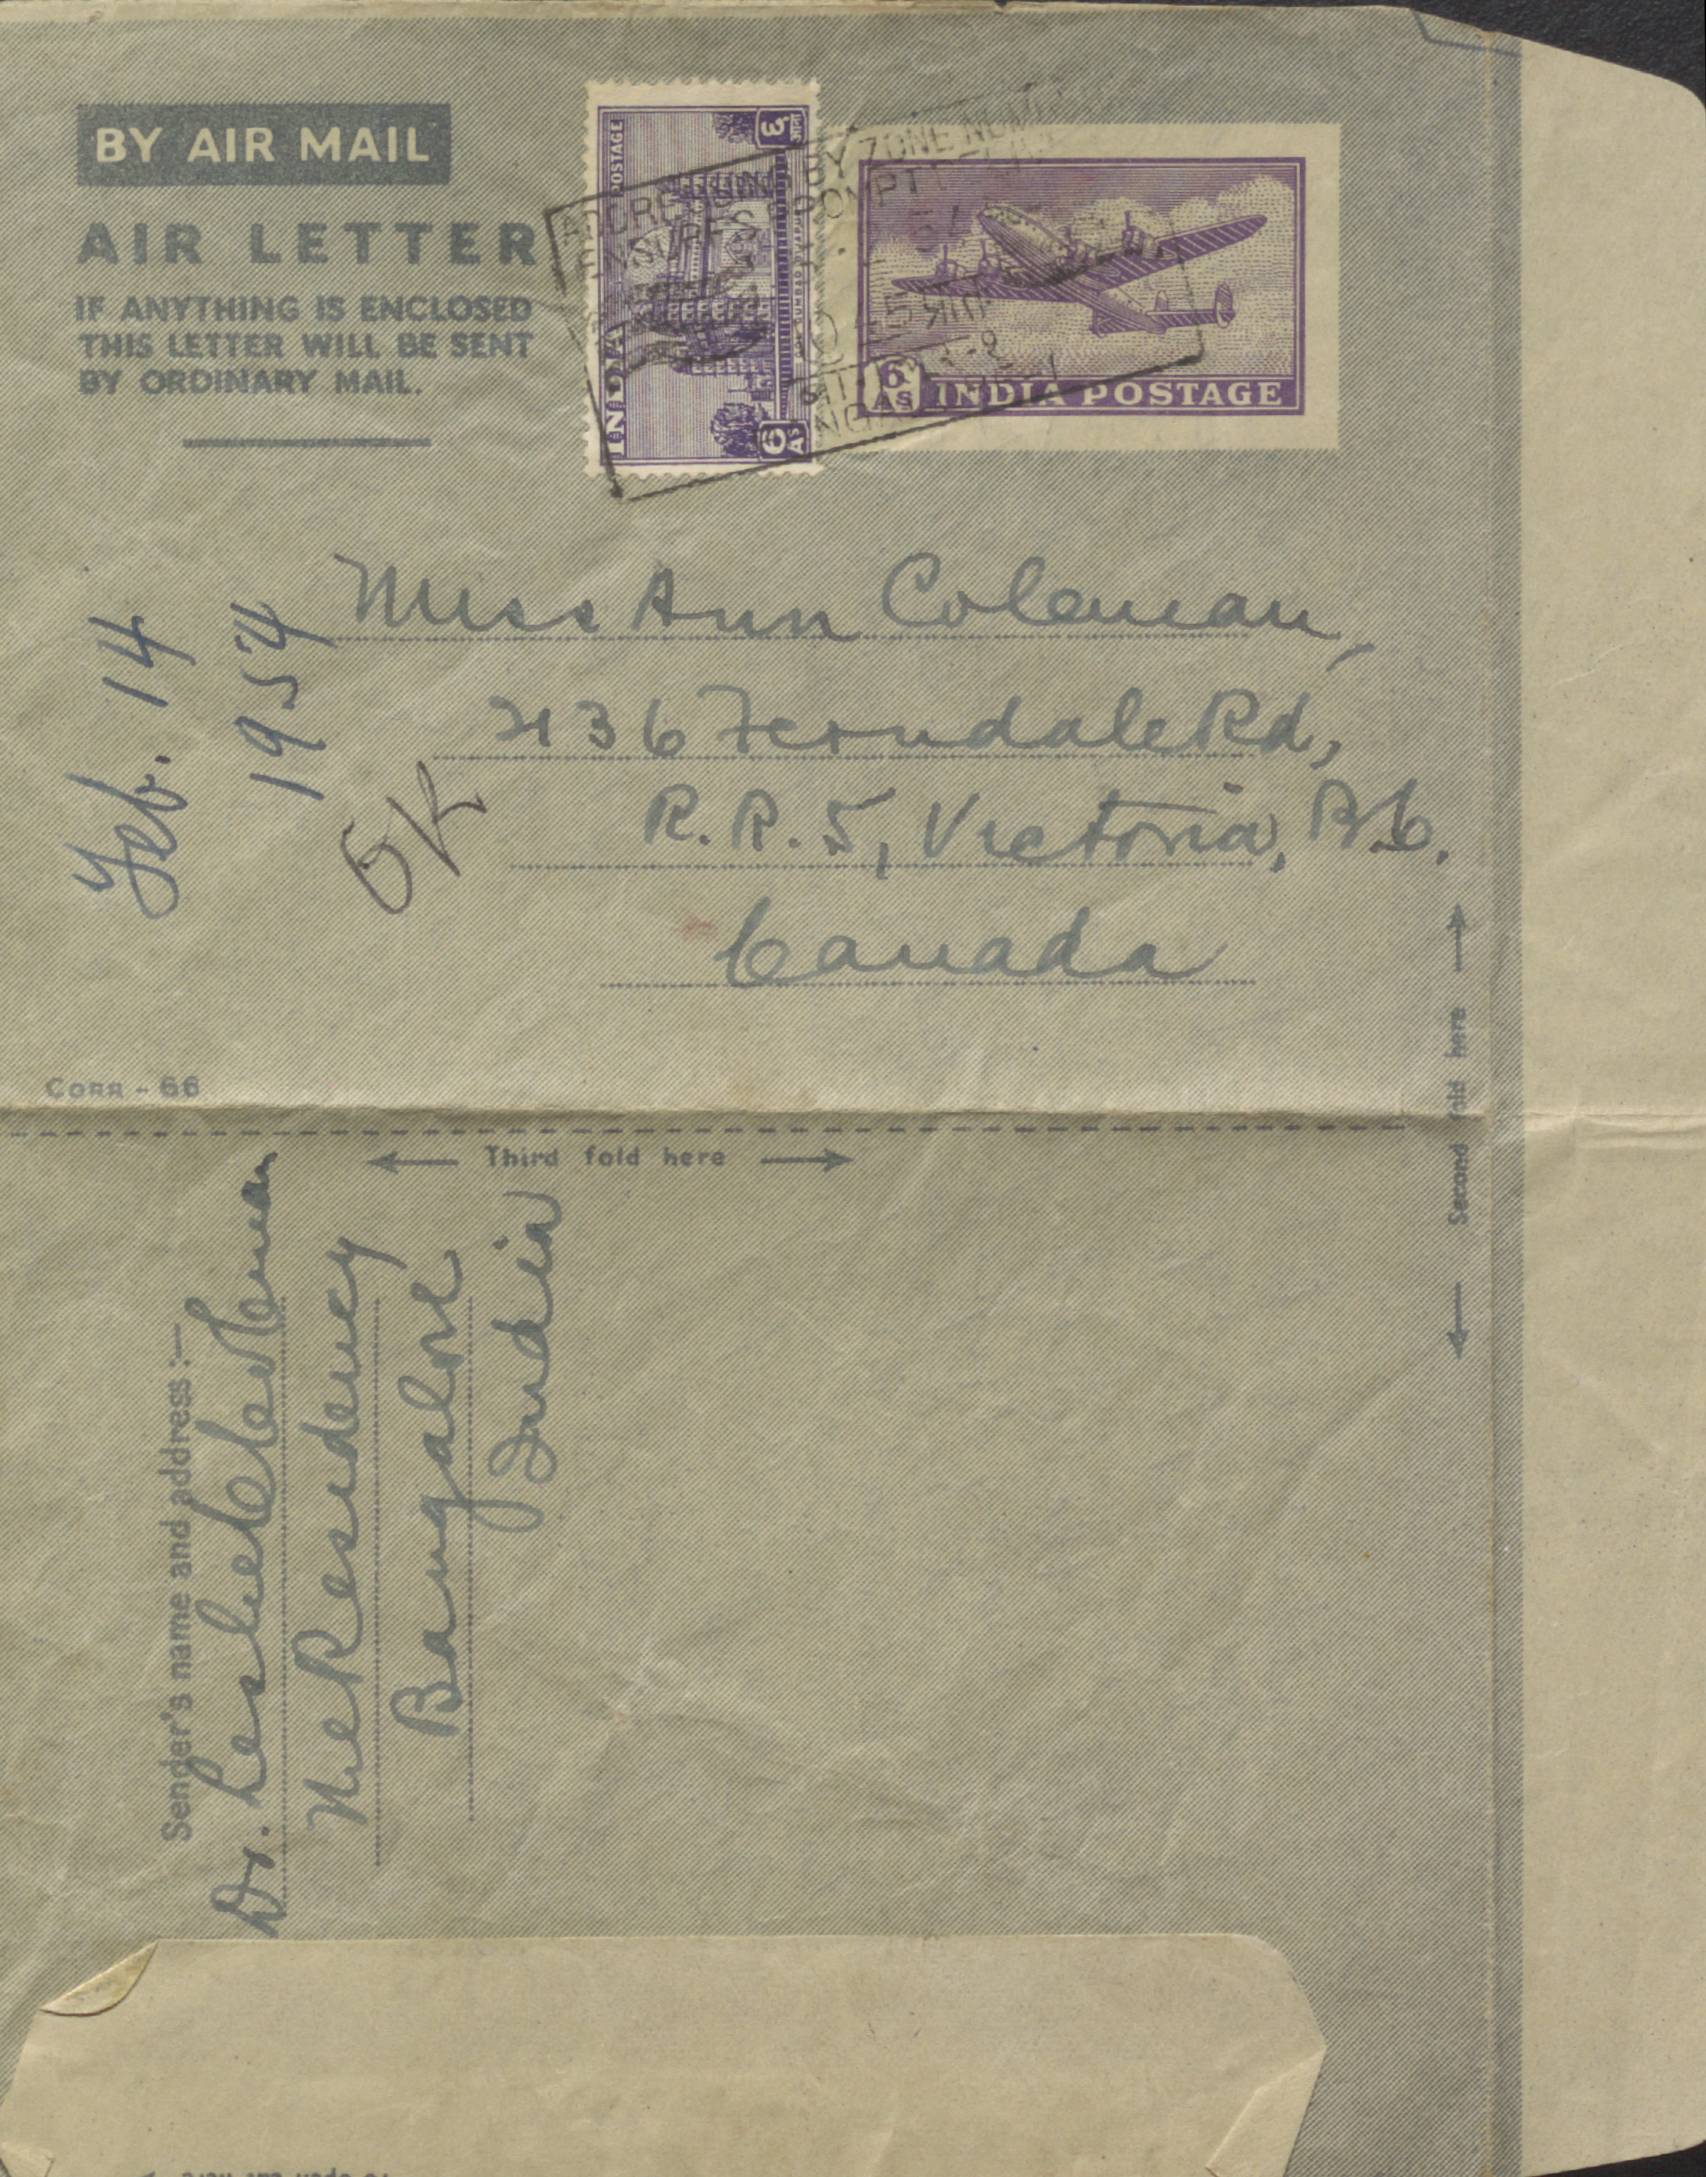 BY AIR MAIL
AIR LETTER
IF ANYTHING IS ENCLOSED
THIS LETTER WILL BE SENT
BY ORDINARY MAIL.
POSTAGE
INDIA
६
6
As
ADDRESSING BY ZONE
ENSURES PROMPT
6
As
INDIA POSTAGE
Feb. 14
1954
OK
Miss Ann Coleman,
2136 Ferndale Rd,
R.R.5, Victoria, B.C.
Canada
CORR - 66
Third fold here
Second fold here
Sender's name and address :-
Dr. Leslie Coleman
The Residency
Bangalore
India